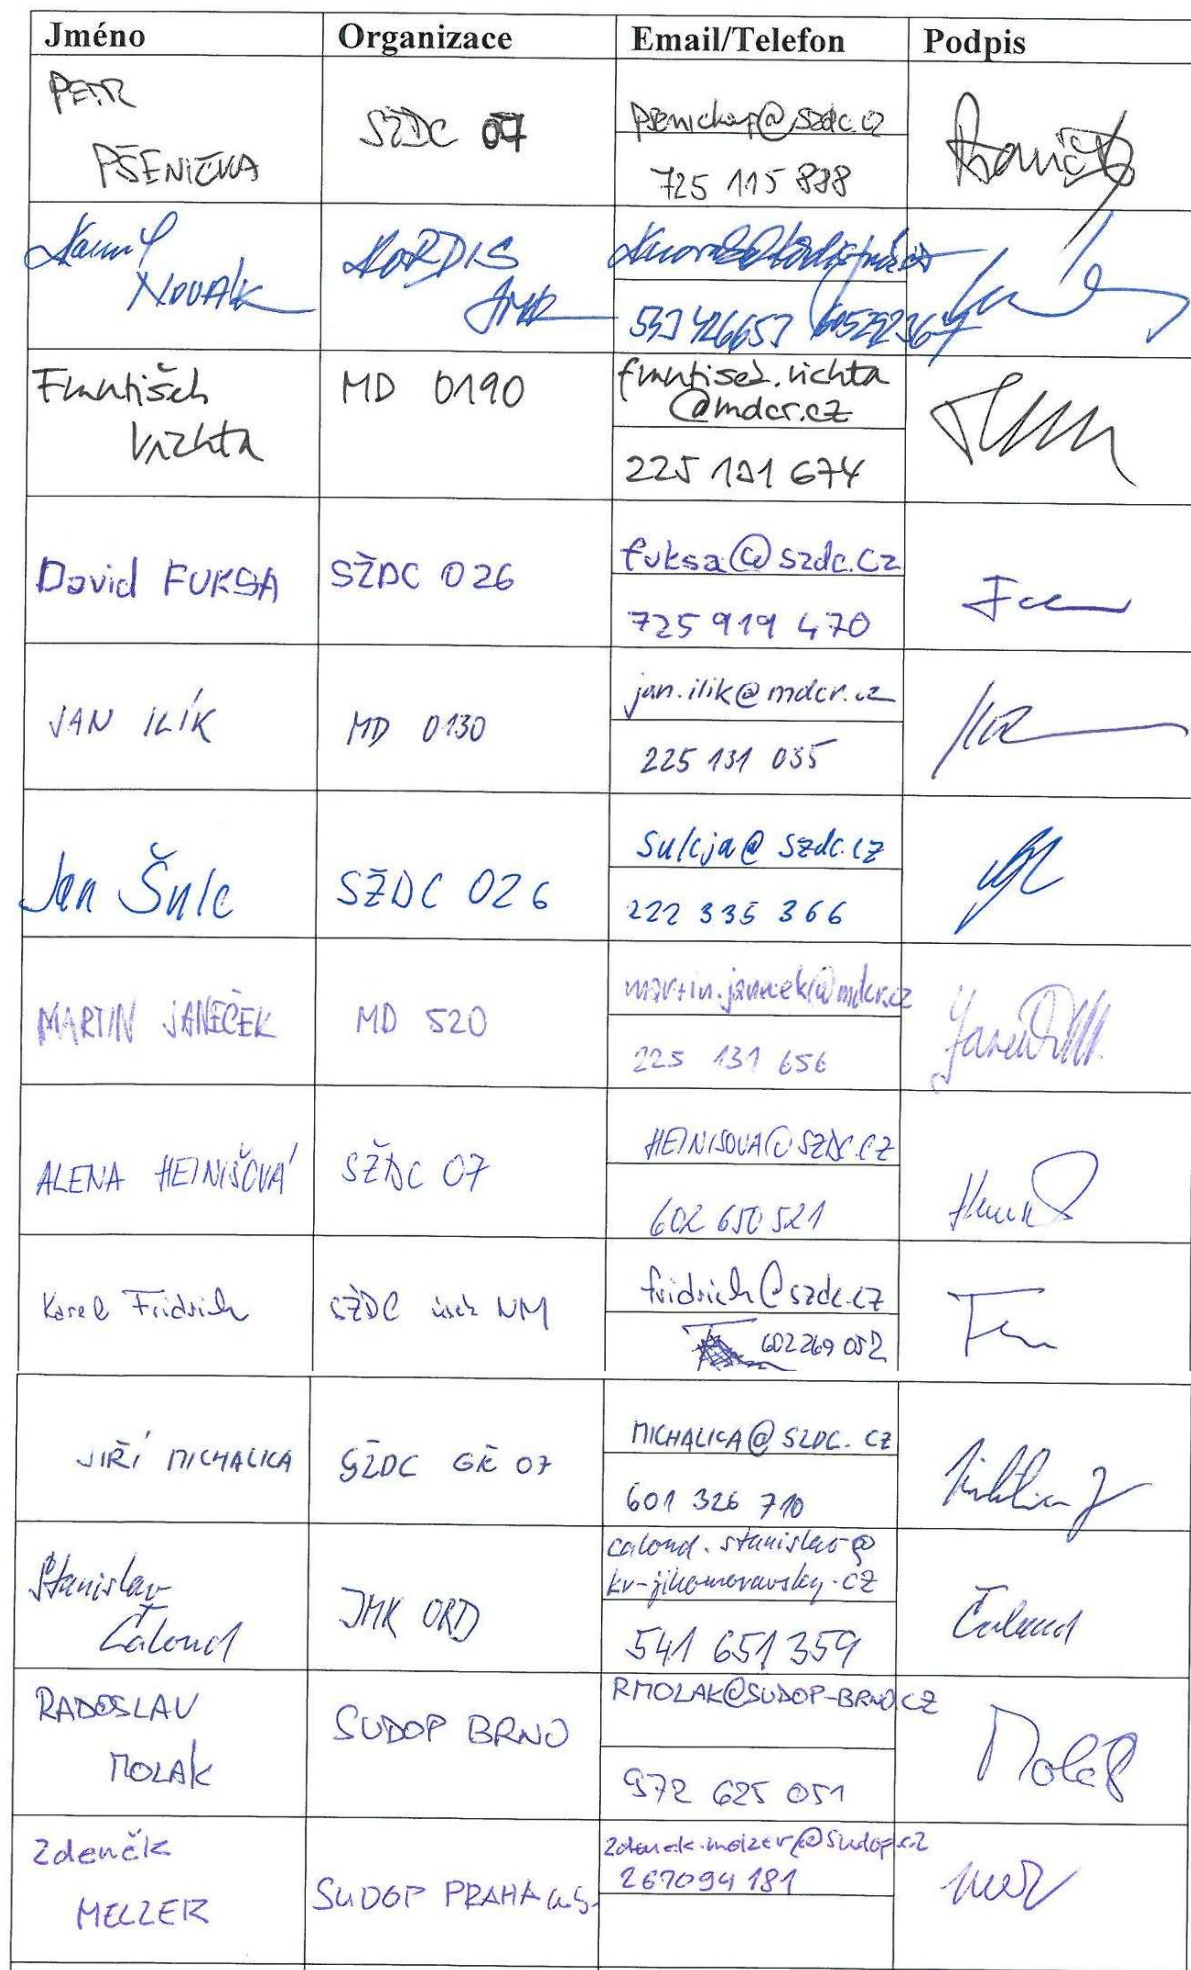 Jméno Organizace Email/Telefon Podpis
PETR
PŠENIČKA
SŽDC 07
psenicka@szdc.cz
725 115 888
NOVÁK
KORDIS
JMK
František
Vichta
MD 0190
frantisek.vichta
@mdcr.cz
225 131 674
David FUKSA
SŽDC 026
fuksa@szdc.cz
725 919 470
JAN ILÍK
MD 0130
jan.ilik@mdcr.cz
225 131 035
Jan Šulc
SŽDC 026
sulcja@szdc.cz
222 335 366
MARTIN JANEČEK
MD 520
martin.janecek@mdcr.cz
225 131 656
ALENA HEINIŠOVÁ
SŽDC 07
HEINISOVA@SZDC.CZ
602 650 521
Karel Fridrich
SŽDC úsek NM
fridrich@szdc.cz
602 269 052
JIŘÍ MICHALICA
SŽDC GŘ 07
MICHALICA@SZDC.CZ
601 326 710
Stanislav
Čaloud
JMK ORD
caloud.stanislav@
kr-jihomoravsky.cz
541 651 359
Čaloud
RADOSLAV
MOLÁK
SUDOP BRNO
RMOLAK@SUDOP-BRNO.CZ
972 625 051
Molák
Zdeněk
MELZER
SUDOP PRAHA a.s.
zdenek.melzer@sudop.cz
267094181